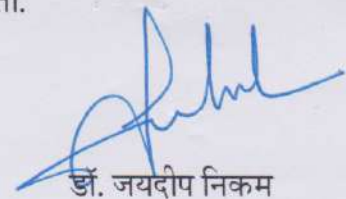 डॉ. जयदीप निकम